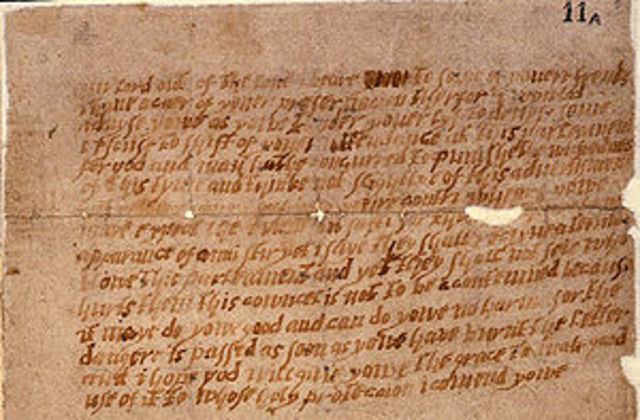 11A
lord out of the love i beare to some of youere frends
i have a caer of youer preservacion therfor i would
advyse yowe as yowe tender youer lyf to devyse some
excuse to shift of youer attendance at this parleament
for god and man hathe concurred to punishe the wickednes
of this tyme and thinke not slightlye of this advertisment
youre contri wheare yowe
maye expect the event in safti for
apparance of anni stir yet i saye they shall receyve a terrible
blowe this parleament and yet they shall not seie who
hurts them this cowncel is not to be contemned because
it maye do yowe good and can do yowe no harme for the
dangere is passed as soon as yowe have burnt the letter
and i hope god will give yowe the grace to mak good
use of it to whose holy proteccion i comend yowe